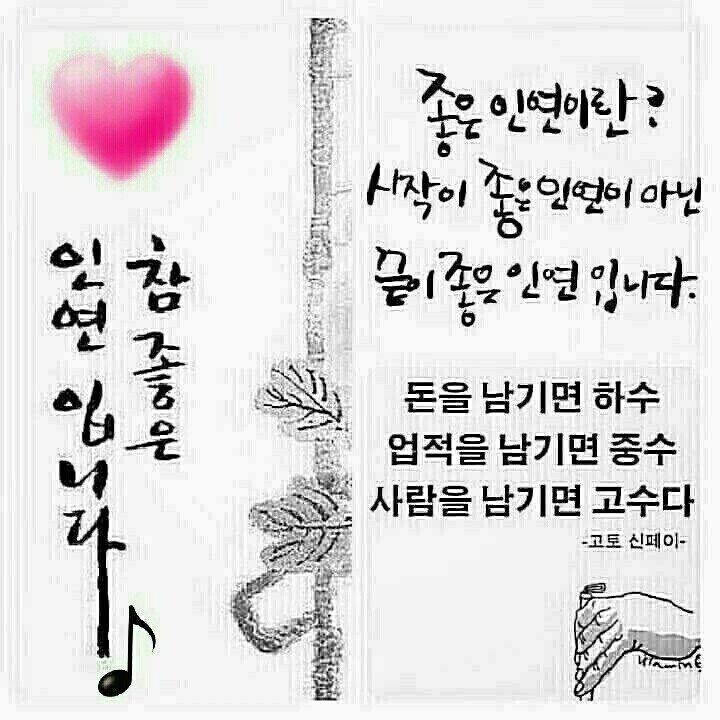 참 좋은
인연 입니다
좋은 인연이란?
시작이 좋은 인연이 아닌
끝이 좋은 인연 입니다.
돈을 남기면 하수
업적을 남기면 중수
사람을 남기면 고수다
-고토 신페이-